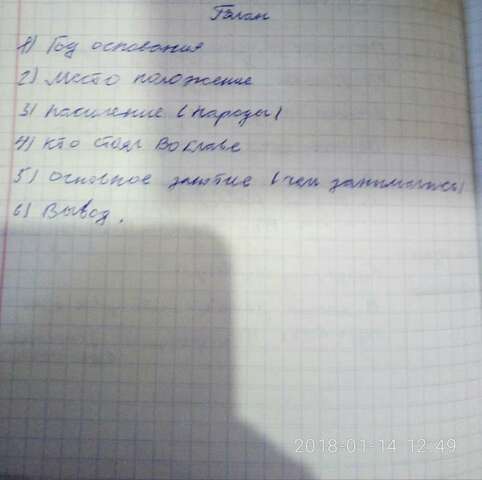 План
1) Год основания
2) Место положение
3) Население (народы)
4) Кто стоял Во главе
5) Основное занятие (чем занимались)
6) Вывод.
2018-01-14 12:49